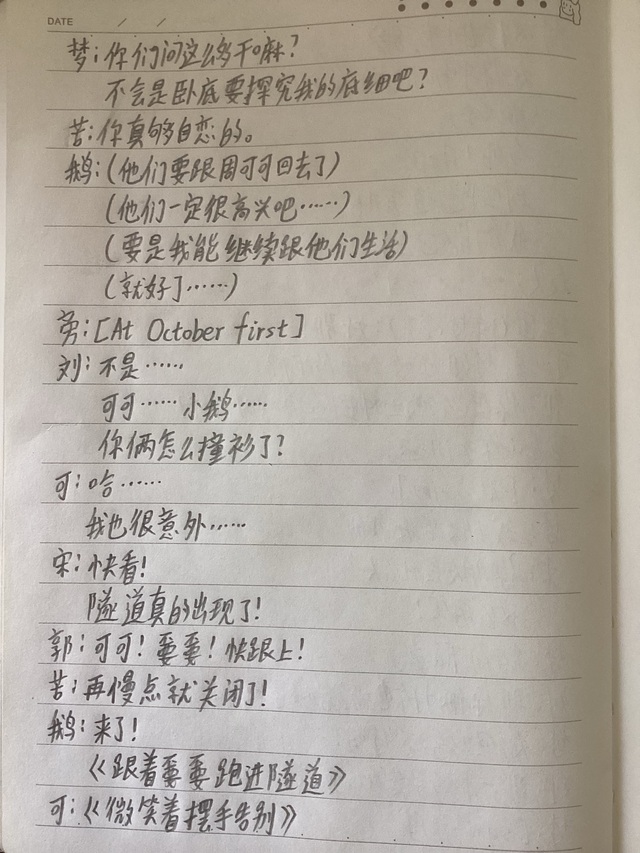 DATE / /
梦:你们问这么多干嘛?
不会是卧底要探究我的底细吧?
苦:你真够自恋的。
鹅:(他们要跟周可可回去了)
(他们一定很高兴吧……)
(要是我能继续跟他们生活)
(就好了……)
旁:[At October first]
刘:不是……
可可……小鹅……
你俩怎么撞衫了?
可:哈……
我也很意外……
宋:快看!
隧道真的出现了!
郭:可可!要要!快跟上!
苦:再慢点就关闭了!
鹅:来了!
《跟着要要跑进隧道》
可:《微笑着摆手告别》